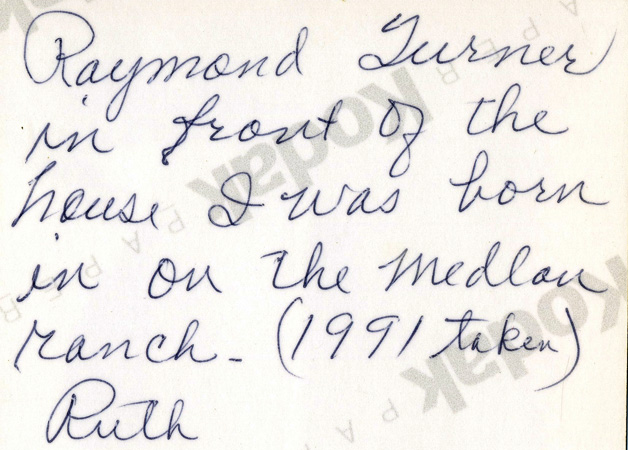 Raymond Turner
in front of the
house I was born
in on the Medlan
ranch - (1991 taken)
Ruth
Kodak
Kodak
Kodak